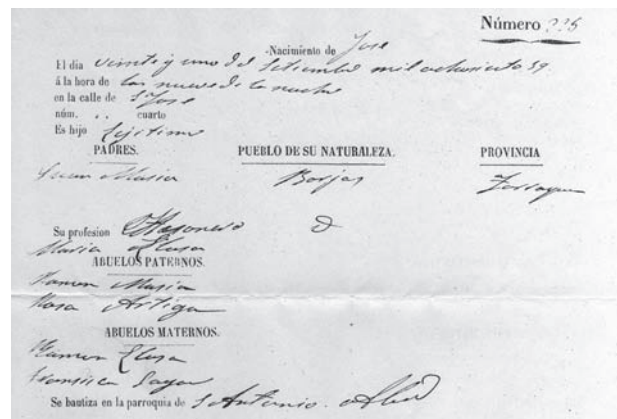 Número 225
Nacimiento de Jose
El dia veinte y uno del Setiembre mil ochosiento 59.
á la hora de las nueve de la noche
en la calle de S Jose
núm. .. cuarto
Es hijo lejitimo
PADRES. PUEBLO DE SU NATURALEZA. PROVINCIA
Juan Masia Borjas
Su profesion
Maria
ABUELOS PATERNOS.
Ramon Masia
Rosa Artiga
ABUELOS MATERNOS.
Ramon
Se bautiza en la parroquia de S Antonio Abad